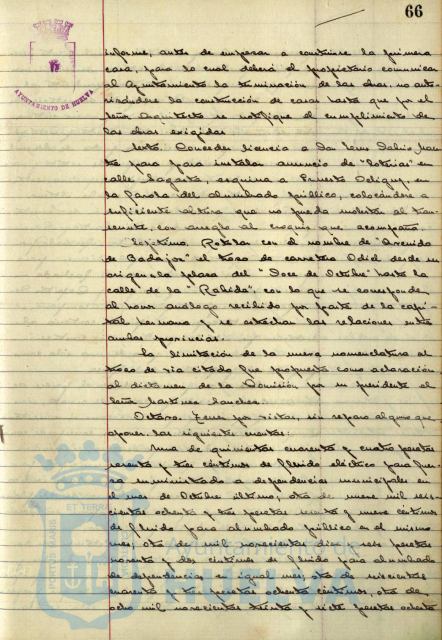 66
AYUNTAMIENTO DE HUELVA
informe, antes de empezar a construirse la primera
casa, para lo cual deberá el propietario comunicar
al Ayuntamiento la terminación de las obras, no auto-
rizándose la construcción de casas hasta que por el
Señor Arquitecto se notifique el cumplimiento de
las obras exigidas.
Sexto. Conceder licencia a Don
para para instalar anuncio de "loterías" en
calle Sagasta, esquina a Ernesto Deligny, en
la farola del alumbrado público, colocándose a
suficiente altura que no pueda molestar al tran-
seunte, con arreglo al croquis que acompaña.
Séptimo. Rotular con el nombre de "Avenida
de Badajoz" el trozo de carretera Odiel desde su
origen en la plaza del "Doce de Octubre" hasta la
calle de la "Rábida", con lo que se corresponde
al honor análogo recibido por parte de la capi-
tal hermana y se estrechan las relaciones entre
ambas provincias.
La limitación de la nueva nomenclatura al
trozo de vía citado fue propuesta como aclaración
al dictamen de la Comisión por su presidente el
Señor Martínez Sánchez.
Octavo. Tener por vistas, sin reparo alguno que
oponer, las siguientes cuentas:
Una de quinientas cuarenta y cuatro pesetas
sesenta y tres céntimos de fluido eléctrico para fuer-
za suministrado a dependencias municipales en
el mes de Octubre último; otra de nueve mil seis-
cientas ochenta y tres pesetas sesenta y nueve céntimos
de fluido para alumbrado público en el mismo
mes; otra de mil novecientas diez y seis pesetas
noventa y dos céntimos de fluido para alumbrado
de dependencias en igual mes; otra de
cuarenta y tres pesetas ochenta céntimos, otra de
ocho mil novecientas treinta y siete pesetas ochenta
Ayuntamiento de